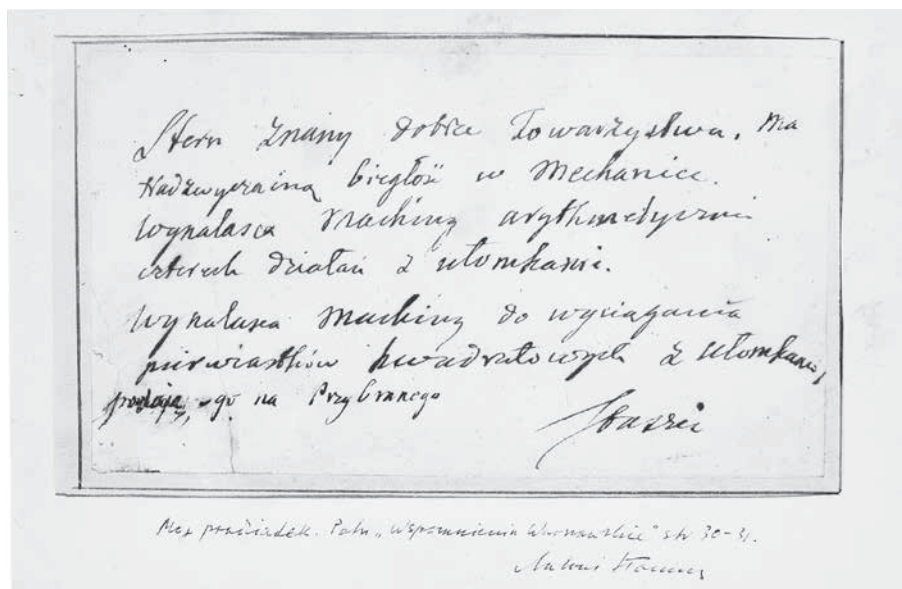 Stern znany dobrze Towarzystwu. Ma
Nadzwyczainą biegłość w Mechanice.
Wynalasca Machiny arythmetyczni
czterech działań z ułomkami.
Wynalasca Machiny do wyciągania
pierwiastków kwadratowych z ułomkami,
podają go na Przybranego
Staszic
Mój pradziadek. Patrz „Wspomnienia Warszawskie" str 30-31.
Antoni Słonimski